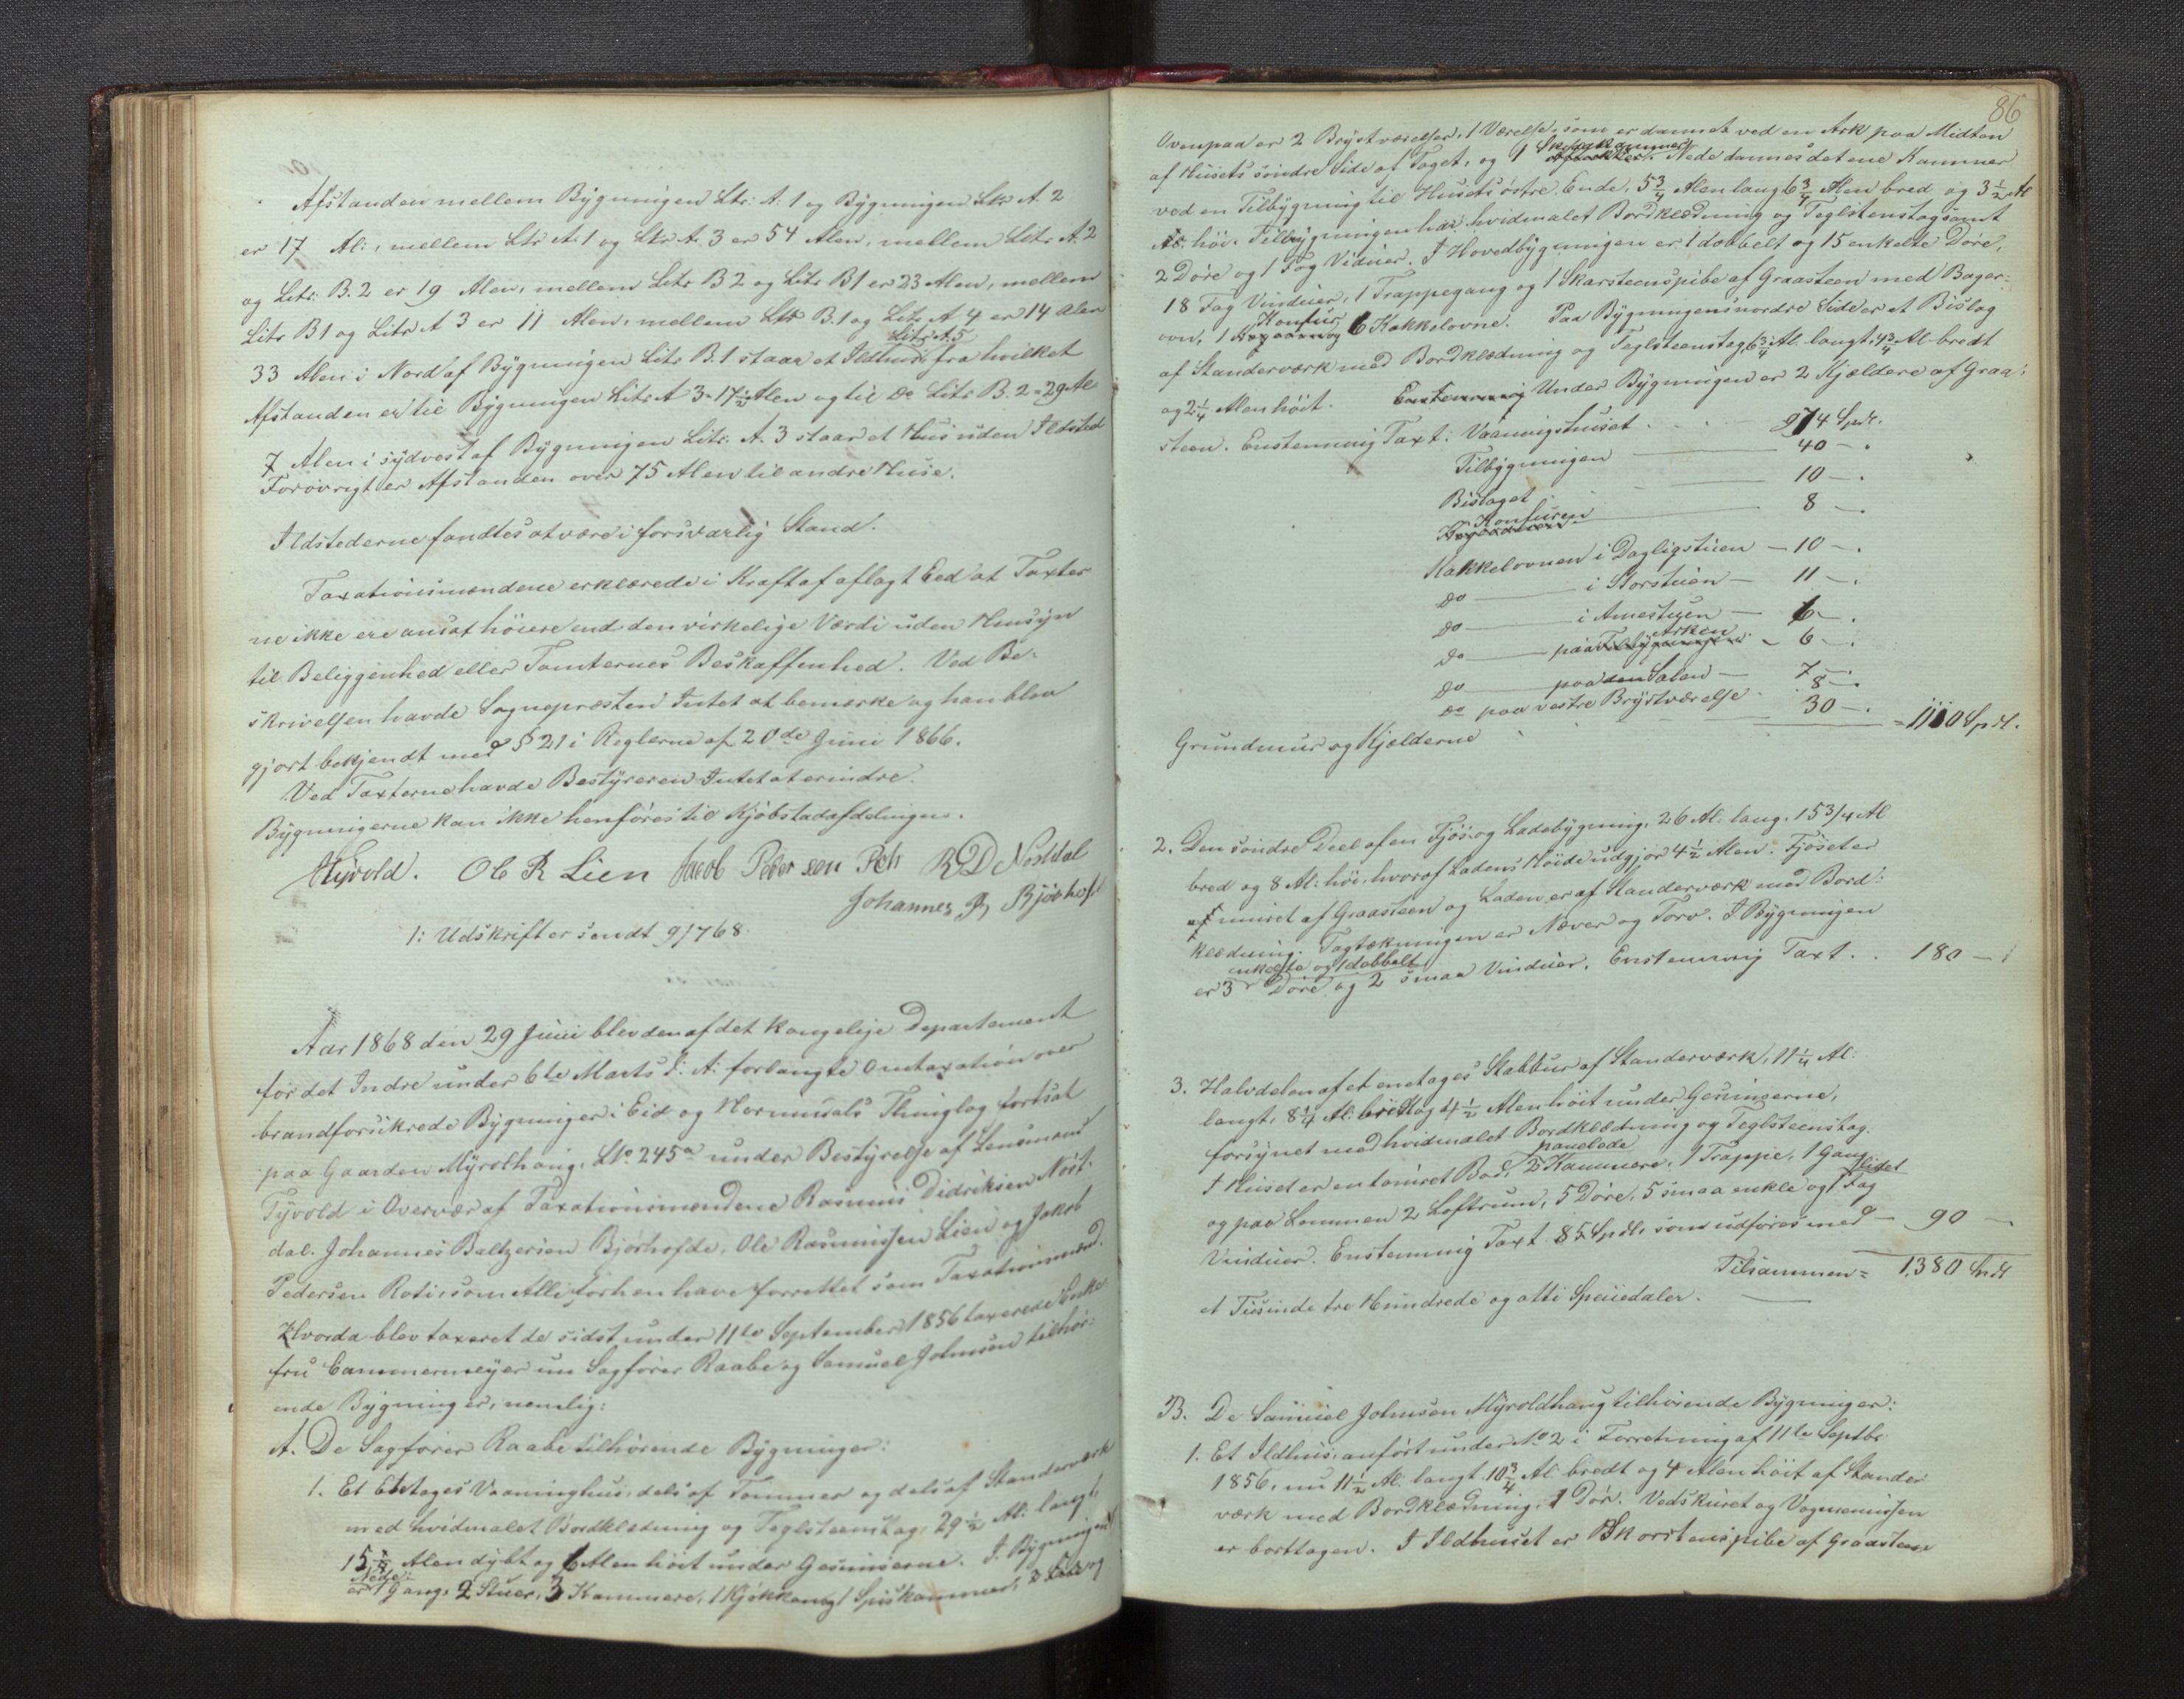 Afstanden mellem Bygningen Ltr: A. 1 og Bygningen Ltr A. 2
er 17 Al:, mellem Ltr A. 1 og Ltr A. 3 er 54 Alen, mellem Litr A. 2
og Litr: B. 2 er 19 Alen, mellem Litr B 2 og Litr B 1 er 23 Alen, mellem
Litr B 1 og Litr A 3 er 11 Alen, mellem Litr B. 1 og Litr A 4 er 14 Alen
33 Alen i Nord af Bygningen Litr B. 1 staar et Ildhus Litr A. 5 fra hvilket
Afstanden er til Bygningen Litr A 3 = 17 1/2 Alen og til Do Litr B. 2 = 29 Al
7 Alen i sydvest af Bygningen Litr. A. 3 staar et Hus uden Ildsted
Forøvrigt er Afstanden over 75 Alen til andre Huse.
Ildstederne fandtes at være i forsvarlig Stand.
Taxationsmændene erklærede i Kraft af aflagt Eed at Taxter
ne ikke ere ansat høiere end den virkelige Værdi uden Hensyn
til Beliggenhed eller Tomternes Beskaffenhed. Ved Be-
skrivelsen havde Sognepræsten Intet at bemærke og han blev
gjort bekjendt med § 21 i Reglerne af 20de Juni 1866.
Ved Taxterne havde Bestyreren Intet at erindre.
Bygningerne kan ikke henføres til Kjøbstadafdelingen.
Ole R Lien Jacob Peder sen R D Nøstdal
Johannes B Bjørhofd
1: Udskrift er sendt 9/7 68.
Aar 1868 den 29 Juni blev den af det kongelige Departement
for det Indre under 6te Marts d: A: forlangte Omtaxation over
brandforsikrede Bygninger i Eid og Hornindals Thinglag fortsat
paa Gaarden Myroldhaug, L No 245a under Bestyrelse af Lensmand
Tyvold i Overvær af Taxationsmændene Rasmus Didriksen Nøst-
dal. Johannes Baltzersen Bjørhofde, Ole Rasmussen Lien og Jakob
Pedersen Roti, som Alle forhen have forrettet som Taxationsmænd.
Hvorda blev taxeret de sidst under 11te September 1856 taxerede Enke
fru Cammermeyer nu Sagfører Raabe og Samuel Johnsen tilhør-
ende Bygninger, nemlig:
A. De Sagfører Raabe tilhørende Bygninger:
1. Et Etetages Vaaninghus, dels af Tømmer og dels af Standerværk
med hvidmalet Bordklædning og Teglsteenstag, 29 1/2 Al: langt,
15 1/4 Alen dybt og 6 Alen høit under Gesimserne. I Bygningen
er Nede: 1 Gang, 2 Stuer, 3 Kammere, 1 Kjøkken og 1 Spiskammer, 2 og
86
Ovenpaa er 2 Brystværelser, 1 Værelse, som er dannet ved en Ark paa Midten
af Husets søndre Side af Taget, og 1 Nede dannes det ene Kammer
ved en Tilbygning til Husets østre Ende, 5 3/4 Alen lang 6 3/4 Alen bred og 3 1/2 Al
Al: høi. Tilbygningen har hvidmalet Bordklædning og Teglstenstag samt
2 Døre og 1 Fag Vinduer. I Hovedbygningen er 1 dobbelt og 15 enkelte Døre,
18 Fag Vinduer, 1 Trappegang og 1 Skorsteenspibe af Graasteen med Bager-
ovn, 1 Komfur 6 Kakkelovne. Paa Bygningens nordre Side er et Bislag
af Standerværk med Bordklædning og Teglsteenstag 6 3/4 Al. langt, 4 3/4 Al bredt
og 2 1/4 Alen høit. Enstemmig Under Bygningen er 2 Kjældere af Graa-
steen. Enstemmig Taxt: Vaaningshuset . . 974 Spdr.
Tilbygningen 40 — .
Bislaget 10 — .
Komfuren 8 — .
Kakkelovnen i Dagligstuen — 10 — .
Do — i Storstuen — 11 — .
Do — i Amestuen — 6 — .
Do — paa Arken — 6 — .
Do — paa den Salen — 7 — .
Do paa vestre Brystværelse 8 — .
Grundmur og Kjælderne 30 — . = 1110 Spdr.
2. Den søndre Deel af en Fjøs og Ladebygning, 26 Al: lang, 15 3/4 Al
bred og 8 Al: høi, hvoraf Ladens Høide udgjør 4 1/2 Alen. Fjøset er
af muret af Graasteen og Laden er af Standerværk med Bord-
klædning. Tagtækningen er Næver og Torv. I Bygningen
er 3 enkelte og 1 dobbelt Døre og 2 smaa Vinduer. Enstemmig Taxt . . 180 —
3. Halvdelen af et enetages Stabbur af Standerværk, 11 1/4 Al:
langt, 8 1/4 Al: bredt og 4 1/2 Alen høit under Gesimserne,
forsynet med hvidmalet Bordklædning og Teglsteenstag.
I Huset er en tømret Bod, 2 panelede Kammere, 1 Trappe, 1 Gang
og paa Lemmen 2 Loftrum, 5 Døre, 5 smaa enkle og 1 lidet Fag
Vinduer. Enstemmig Taxt 85 Spdlr som udføres med — 90 —
Tilsammen = 1,380 Spdr
et Tusinde tre Hundrede og otti Speciedaler.
B. De Samuel Johnsen Myroldhaug tilhørende Bygninger:
1. Et Ildhus, anført under No 2 i Forretning af 11te Septbr
1856, nu 11 1/2 Al. langt 10 3/4 Al bredt og 4 Alen høit af Stander
værk med Bordklædning, 1 Dør. Vedskuret og Vognremissen
er borttagen. I Ildhuset er Skorstenspibe af Graasteen